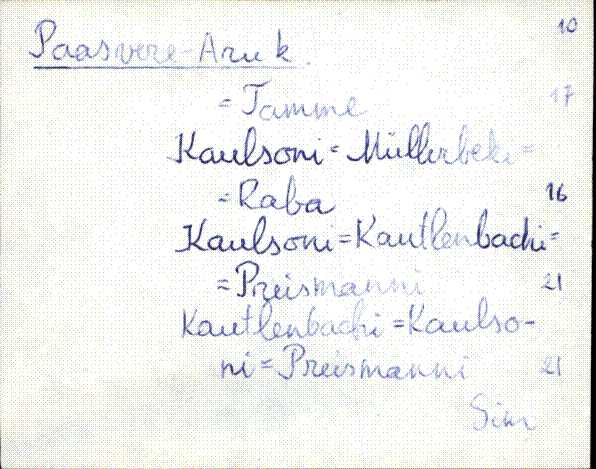 10
Paasvere-Aru k.
= Tamme 17
Kaulsoni = Müllerbeki =
= Raba 16
Kaulsoni = Kautlenbachi =
= Preismanni 21
Kautlenbachi = Kaulso-
ni = Preismanni 21
Sim